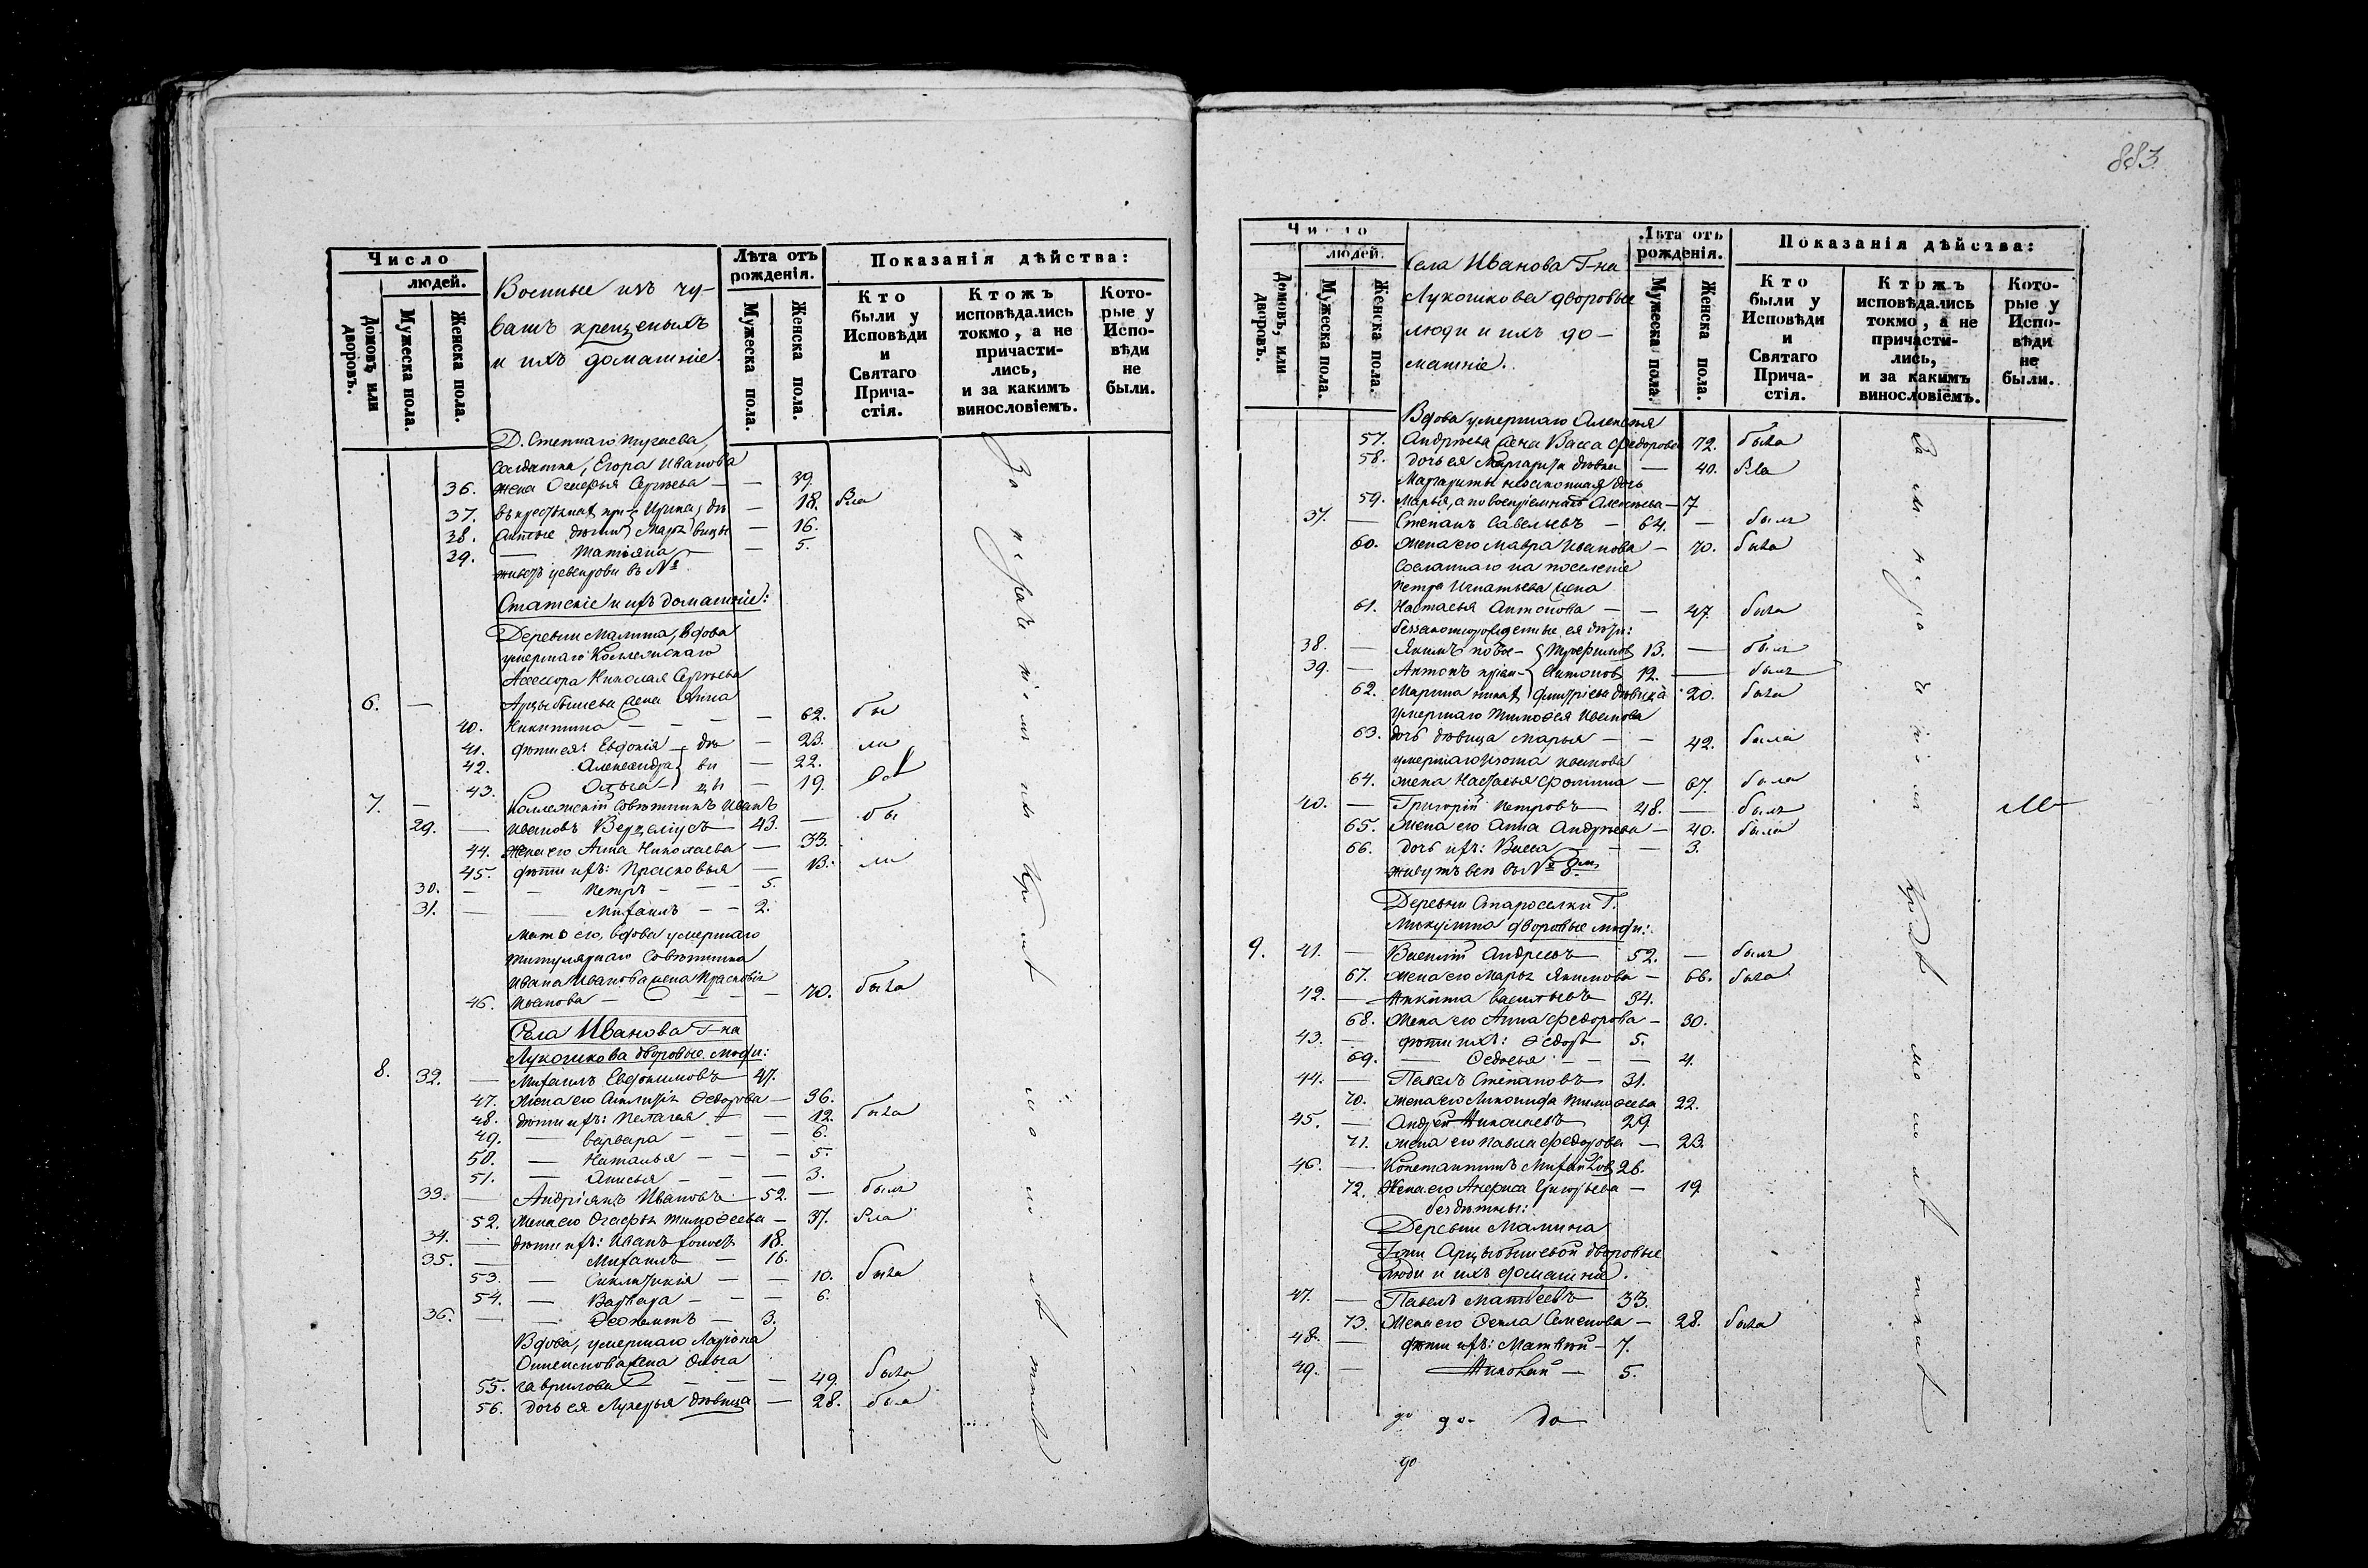 883
Число
людей.
Домовъ, или дворовъ.
Мужеска пола.
Женска пола.
Военные изъ чу-
вашъ крещеныхъ
и ихъ домашніе.
Лѣта отъ рожденія.
Мужеска пола.
Женска пола.
Показанія дѣйства:
Кто были у Исповѣди и Святаго Причастія.
Ктожъ исповѣдались токмо, а не причастились, и за какимъ винословіемъ.
Которые у Исповѣди не были.
Солдатка, Егора Иванова
36. жена Сергѣева — — 39.
37. Ирина — 18. была
38. дѣти Марья — 16.
39. — Татіяна — — 5.
живетъ въ №
Статскіе и ихъ домашніе:
Деревни Малина, вдова
умершаго Коллежскаго
Асессора Николая Сергѣева
6. — Арцыбышева жена Анна
40. Никитина — — — — 62. бы
41. дѣти ея: Евдокія — дѣ — 23. ли
42. Александра ви — 22.
43. Ольга — цы — 19.
7. — Коллежскій Совѣтникъ Иванъ
29. — Ивановъ — 43. — бы
44. Жена его Анна Николаева — 33.
45. дѣти ихъ: Прасковья — 13. ли
30. — — Петръ — — — 5.
31. — — Михаилъ — — 2.
Мать его, вдова умершаго
титулярнаго Совѣтника
Ивана Иванова жена Прасковія
46. Иванова — — — — 70. была
Села Иванова Г-на
Лукошкова дворовые люди:
8. 32. — Михаилъ Евдокимовъ — 47.
47. Жена его Ѳедорова — 36.
48. дѣти ихъ: Пелагея — — 12. была
49. — Варвара — — — 6.
50. — Наталья — — — 5.
51. — Анисья — — — 3.
33. — Андріянъ Ивановъ — 52. — былъ
52. Жена его Тимоѳеева — 37. была
34. — дѣти ихъ: Иванъ 18.
35. — Михаилъ — 16.
53. — Синклитикія — — 10. была
54. — Варвара — — — 6.
36. — — Ѳеоктистъ — 3.
Вдова, умершаго Ларіона
жена Ольга
55. Гаврилова — — — 49. была
56. дочь ея Лукерья дѣвица — 28. была
За нераченіемъ
Число
людей.
Домовъ, или дворовъ.
Мужеска пола.
Женска пола.
Села Иванова Г-на
Лукошкова дворовые
люди и ихъ до-
машніе.
Лѣта отъ рожденія.
Мужеска пола.
Женска пола.
Показанія дѣйства:
Кто были у Исповѣди и Святаго Причастія.
Ктожъ исповѣдались токмо, а не причастились, и за какимъ винословіемъ.
Которые у Исповѣди не были.
Вдова умершаго Алексѣя
57. Андрѣева жена Васса Федорова 72. была
58. дочь ея Маргарита дѣвка — 40. была
Маргариты незаконная дочь
59. Марья, а по воспріемникѣ Алексѣева — 7
37. — Степанъ Савельевъ — 64. — былъ
60. Жена его Мавра Иванова — 70. была
Сосланнаго на поселеніе
Петра Игнатьева жена
61. Настасья Антонова — — 47. была
беззаконнорожденные ея дѣти:
38. — Якимъ по вос- Трефиловъ 13. — былъ
39. — Антонъ пріем- Антоновъ 12. — былъ
62. Марина никѣ Дмитріева дѣвица 20. была
умершаго Тимоѳея Иванова
63. дочь дѣвица Марья — — 42. была
умершаго Изота Иванова
64. жена Настасья Фомина — 67. была
40. — Григорій Петровъ — 48. — былъ
65. Жена его Анна Андрѣева — 40. была
66. дочь ихъ: Васса — — — 3.
живутъ всѣ въ № 8мъ
Деревни Староселки Г.
Микулина дворовые люди:
9. 41. — Василій Андреевъ — 52. — былъ
67. Жена его Марья Якимова — 66. была
42. — Никита Васильевъ — 34.
68. Жена его Анна Федорова — 30.
43. — дѣти ихъ: Ѳедоръ — 5.
69. — Ѳедосья — — — 4.
44. — Павелъ Степановъ — 31.
70. Жена его Тимоѳеева 22.
45. — Андрей Николаевъ — 29.
71. Жена его Павла Федорова — 23.
46. — Константинъ Михайловъ 26.
72. Жена его Анфиса Григорьева — 19.
бездѣтны:
Деревни Малина
Г-жи Арцыбышевой дворовые
люди и ихъ домашніе.
47. — Павелъ Матвеевъ — 33.
73. Жена его Ѳекла Семенова — 28. была
48. — дѣти ихъ: Матвѣй — 7.
49. — Николай — 5.
За нераченіемъ
до до- до
до